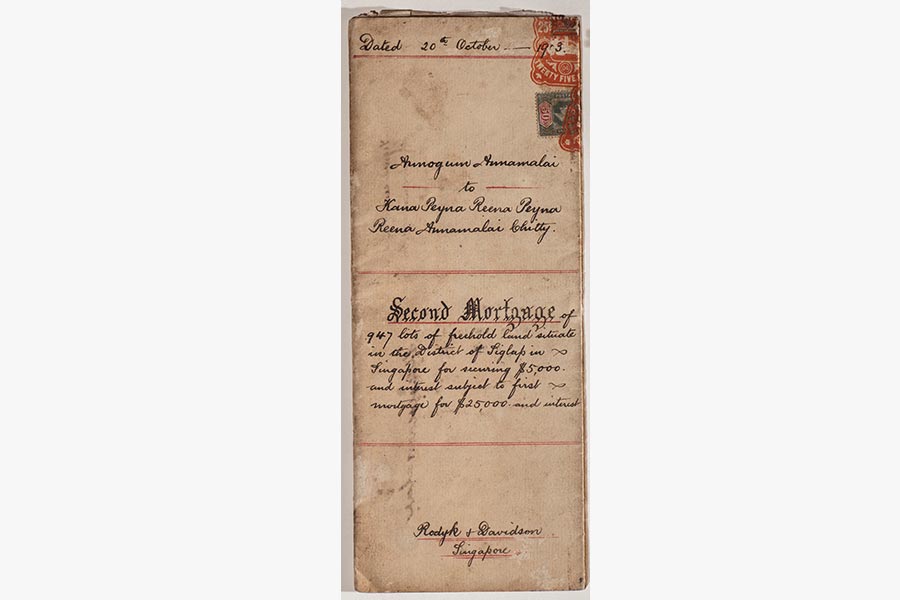 Dated 20th October — 1903.
25
TWENTY FIVE
Armogum Annamalai
to
Kana Peyna Reena Peyna
Reena Annamalai Chitty.
Second Mortgage of
947 lots of freehold land situate
in the District of Siglap in
Singapore for securing $5,000.
and interest subject to first
mortgage for $25,000 and interest
Rodyk & Davidson
Singapore